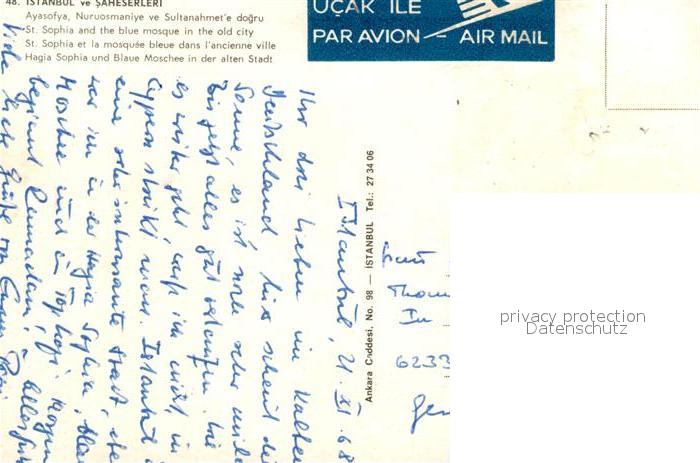 48. İSTANBUL ve ŞAHESERLERİ
Ayasofya, Nuruosmaniye ve Sultanahmet'e doğru
St. Sophia and the blue mosque in the old city
St. Sophia et la mosquée bleue dans l'ancienne ville
Hagia Sophia und Blaue Moschee in der alten Stadt
UÇAK İLE
PAR AVION AIR MAIL
Istanbul, 21. XI. 68
Ihr drei Lieben im kalten
Deutschland, hier scheint die
Sonne, es ist noch sehr milde
Bis jetzt alles gut verlaufen. Wie
es weiter geht weiß ich nicht, in
Cypern streikt man. Istanbul
eine sehr interessante Stadt,
war in der Hagia Sophia, Blau
Moschee und im Topkapi. Morgen
beginnt Ramadan!
Viele liebe Grüße von
Ankara Caddesi. No. 98 — İSTANBUL Tel.: 27 34 06
Frau
Thom
In
6233
Ger
privacy protection
Datenschutz